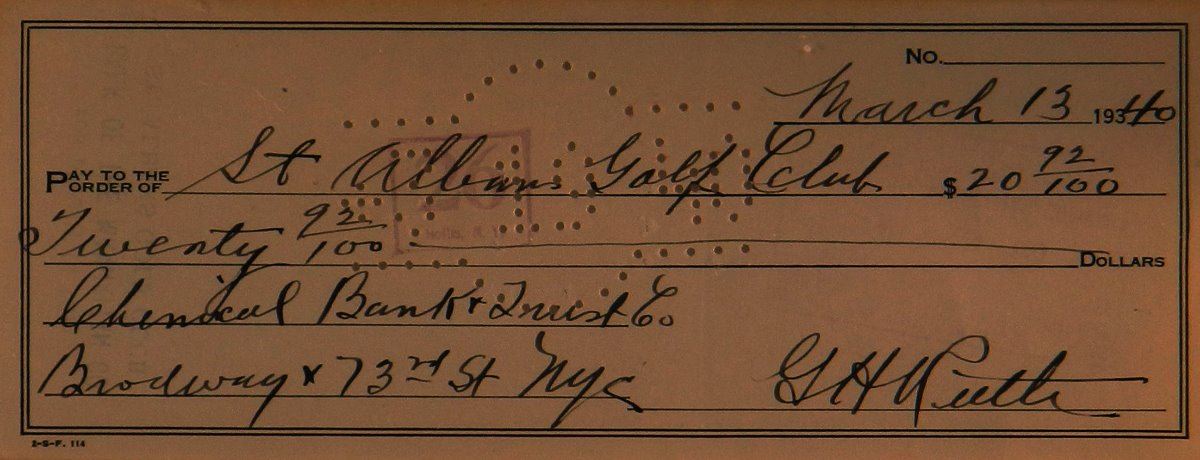 No.
March 13 19340
PAY TO THE ORDER OF St Albans Golf Club $ 20 92/100
Twenty 92/100 DOLLARS
Chemical Bank & Trust Co
Brodway & 73rd St Nyc GHRuth
2-S-F. 114